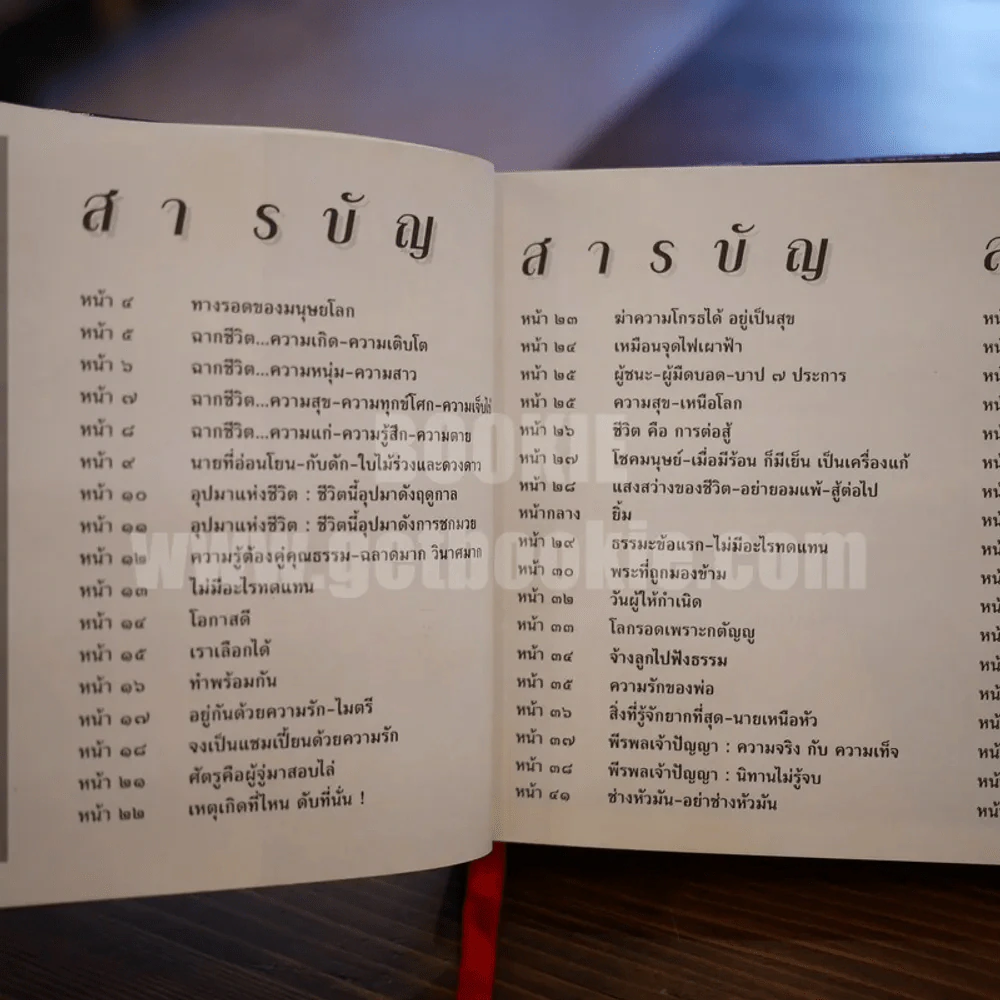 สารบัญ
หน้า ๔ ทางรอดของมนุษยโลก
หน้า ๕ ฉากชีวิต...ความเกิด-ความเติบโต
หน้า ๖ ฉากชีวิต...ความหนุ่ม-ความสาว
หน้า ๗ ฉากชีวิต...ความสุข-ความทุกข์โศก-ความเจ็บไข้
หน้า ๘ ฉากชีวิต...ความแก่-ความรู้สึก-ความตาย
หน้า ๙ นายที่อ่อนโยน-กับดัก-ใบไม้ร่วงและดวงดาว
หน้า ๑๐ อุปมาแห่งชีวิต : ชีวิตนี้อุปมาดังฤดูกาล
หน้า ๑๑ อุปมาแห่งชีวิต : ชีวิตนี้อุปมาดังการชกมวย
หน้า ๑๒ ความรู้ต้องคู่คุณธรรม-ฉลาดมาก วินาศมาก
หน้า ๑๓ ไม่มีอะไรทดแทน
หน้า ๑๔ โอกาสดี
หน้า ๑๕ เราเลือกได้
หน้า ๑๖ ทำพร้อมกัน
หน้า ๑๗ อยู่กันด้วยความรัก-ไมตรี
หน้า ๑๘ จงเป็นแชมเปี้ยนด้วยความรัก
หน้า ๒๑ ศัตรูคือผู้จู่มาสอบไล่
หน้า ๒๒ เหตุเกิดที่ไหน ดับที่นั่น !
สารบัญ
หน้า ๒๓ ฆ่าความโกรธได้ อยู่เป็นสุข
หน้า ๒๔ เหมือนจุดไฟเผาฟ้า
หน้า ๒๕ ผู้ชนะ-ผู้มืดบอด-บาป ๗ ประการ
หน้า ๒๕ ความสุข-เหนือโลก
หน้า ๒๖ ชีวิต คือ การต่อสู้
หน้า ๒๗ โชคมนุษย์-เมื่อมีร้อน ก็มีเย็น เป็นเครื่องแก้
หน้า ๒๘ แสงสว่างของชีวิต-อย่ายอมแพ้-สู้ต่อไป
หน้ากลาง ยิ้ม
หน้า ๒๙ ธรรมะข้อแรก-ไม่มีอะไรทดแทน
หน้า ๓๐ พระที่ถูกมองข้าม
หน้า ๓๒ วันผู้ให้กำเนิด
หน้า ๓๓ โลกรอดเพราะกตัญญู
หน้า ๓๔ จ้างลูกไปฟังธรรม
หน้า ๓๕ ความรักของพ่อ
หน้า ๓๖ สิ่งที่รู้จักยากที่สุด-นายเหนือหัว
หน้า ๓๗ พีรพลเจ้าปัญญา : ความจริง กับ ความเท็จ
หน้า ๓๘ พีรพลเจ้าปัญญา : นิทานไม่รู้จบ
หน้า ๔๑ ช่างหัวมัน-อย่าช่างหัวมัน
BOOKIE
www.getbookie.com